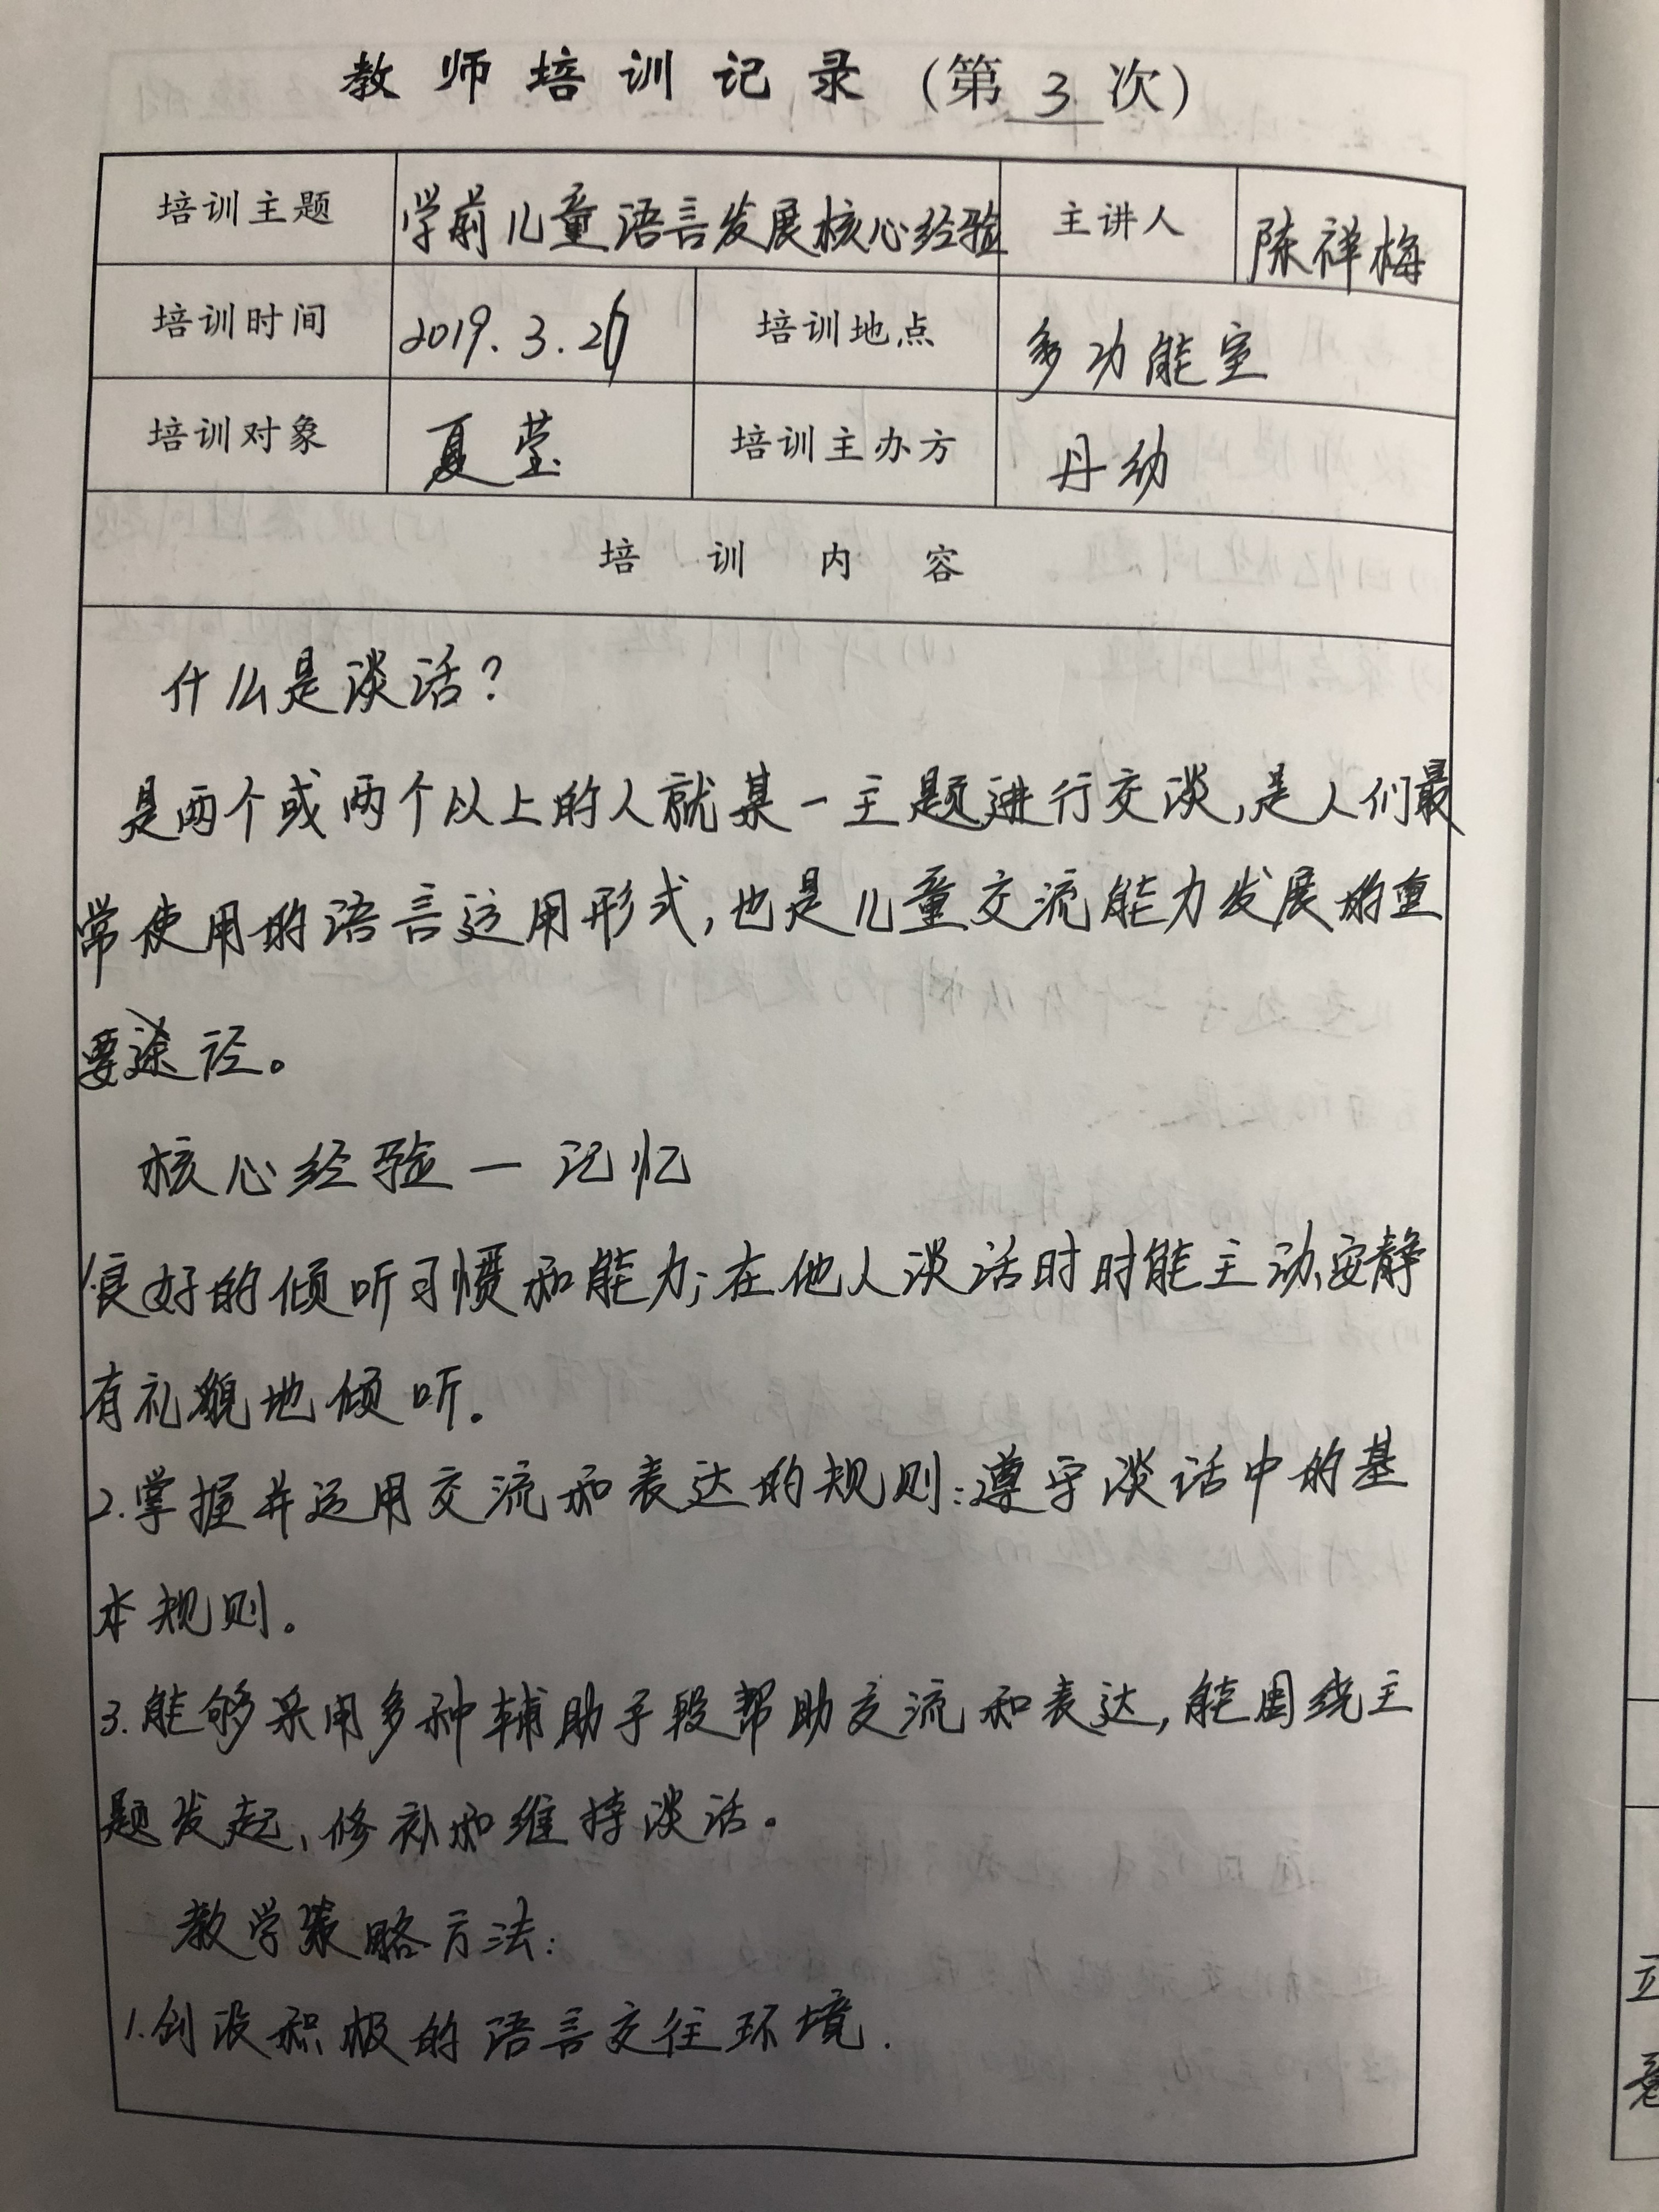 教师培训记录（第 3 次）
培训主题 学前儿童语言发展核心经验 主讲人 陈祥梅
培训时间 2019.3.26 培训地点 多功能室
培训对象 夏莹 培训主办方 丹幼
培训内容
什么是谈话？
是两个或两个以上的人就某一主题进行交谈,是人们最
常使用的语言运用形式,也是儿童交流能力发展的重
要途径。
核心经验一记忆
1.良好的倾听习惯和能力;在他人谈话时时能主动、安静
有礼貌地倾听。
2.掌握并运用交流和表达的规则:遵守谈话中的基
本规则。
3.能够采用多种辅助手段帮助交流和表达,能围绕主
题发起、修补和维持谈话。
教学策略方法:
1.创设积极的语言交往环境.